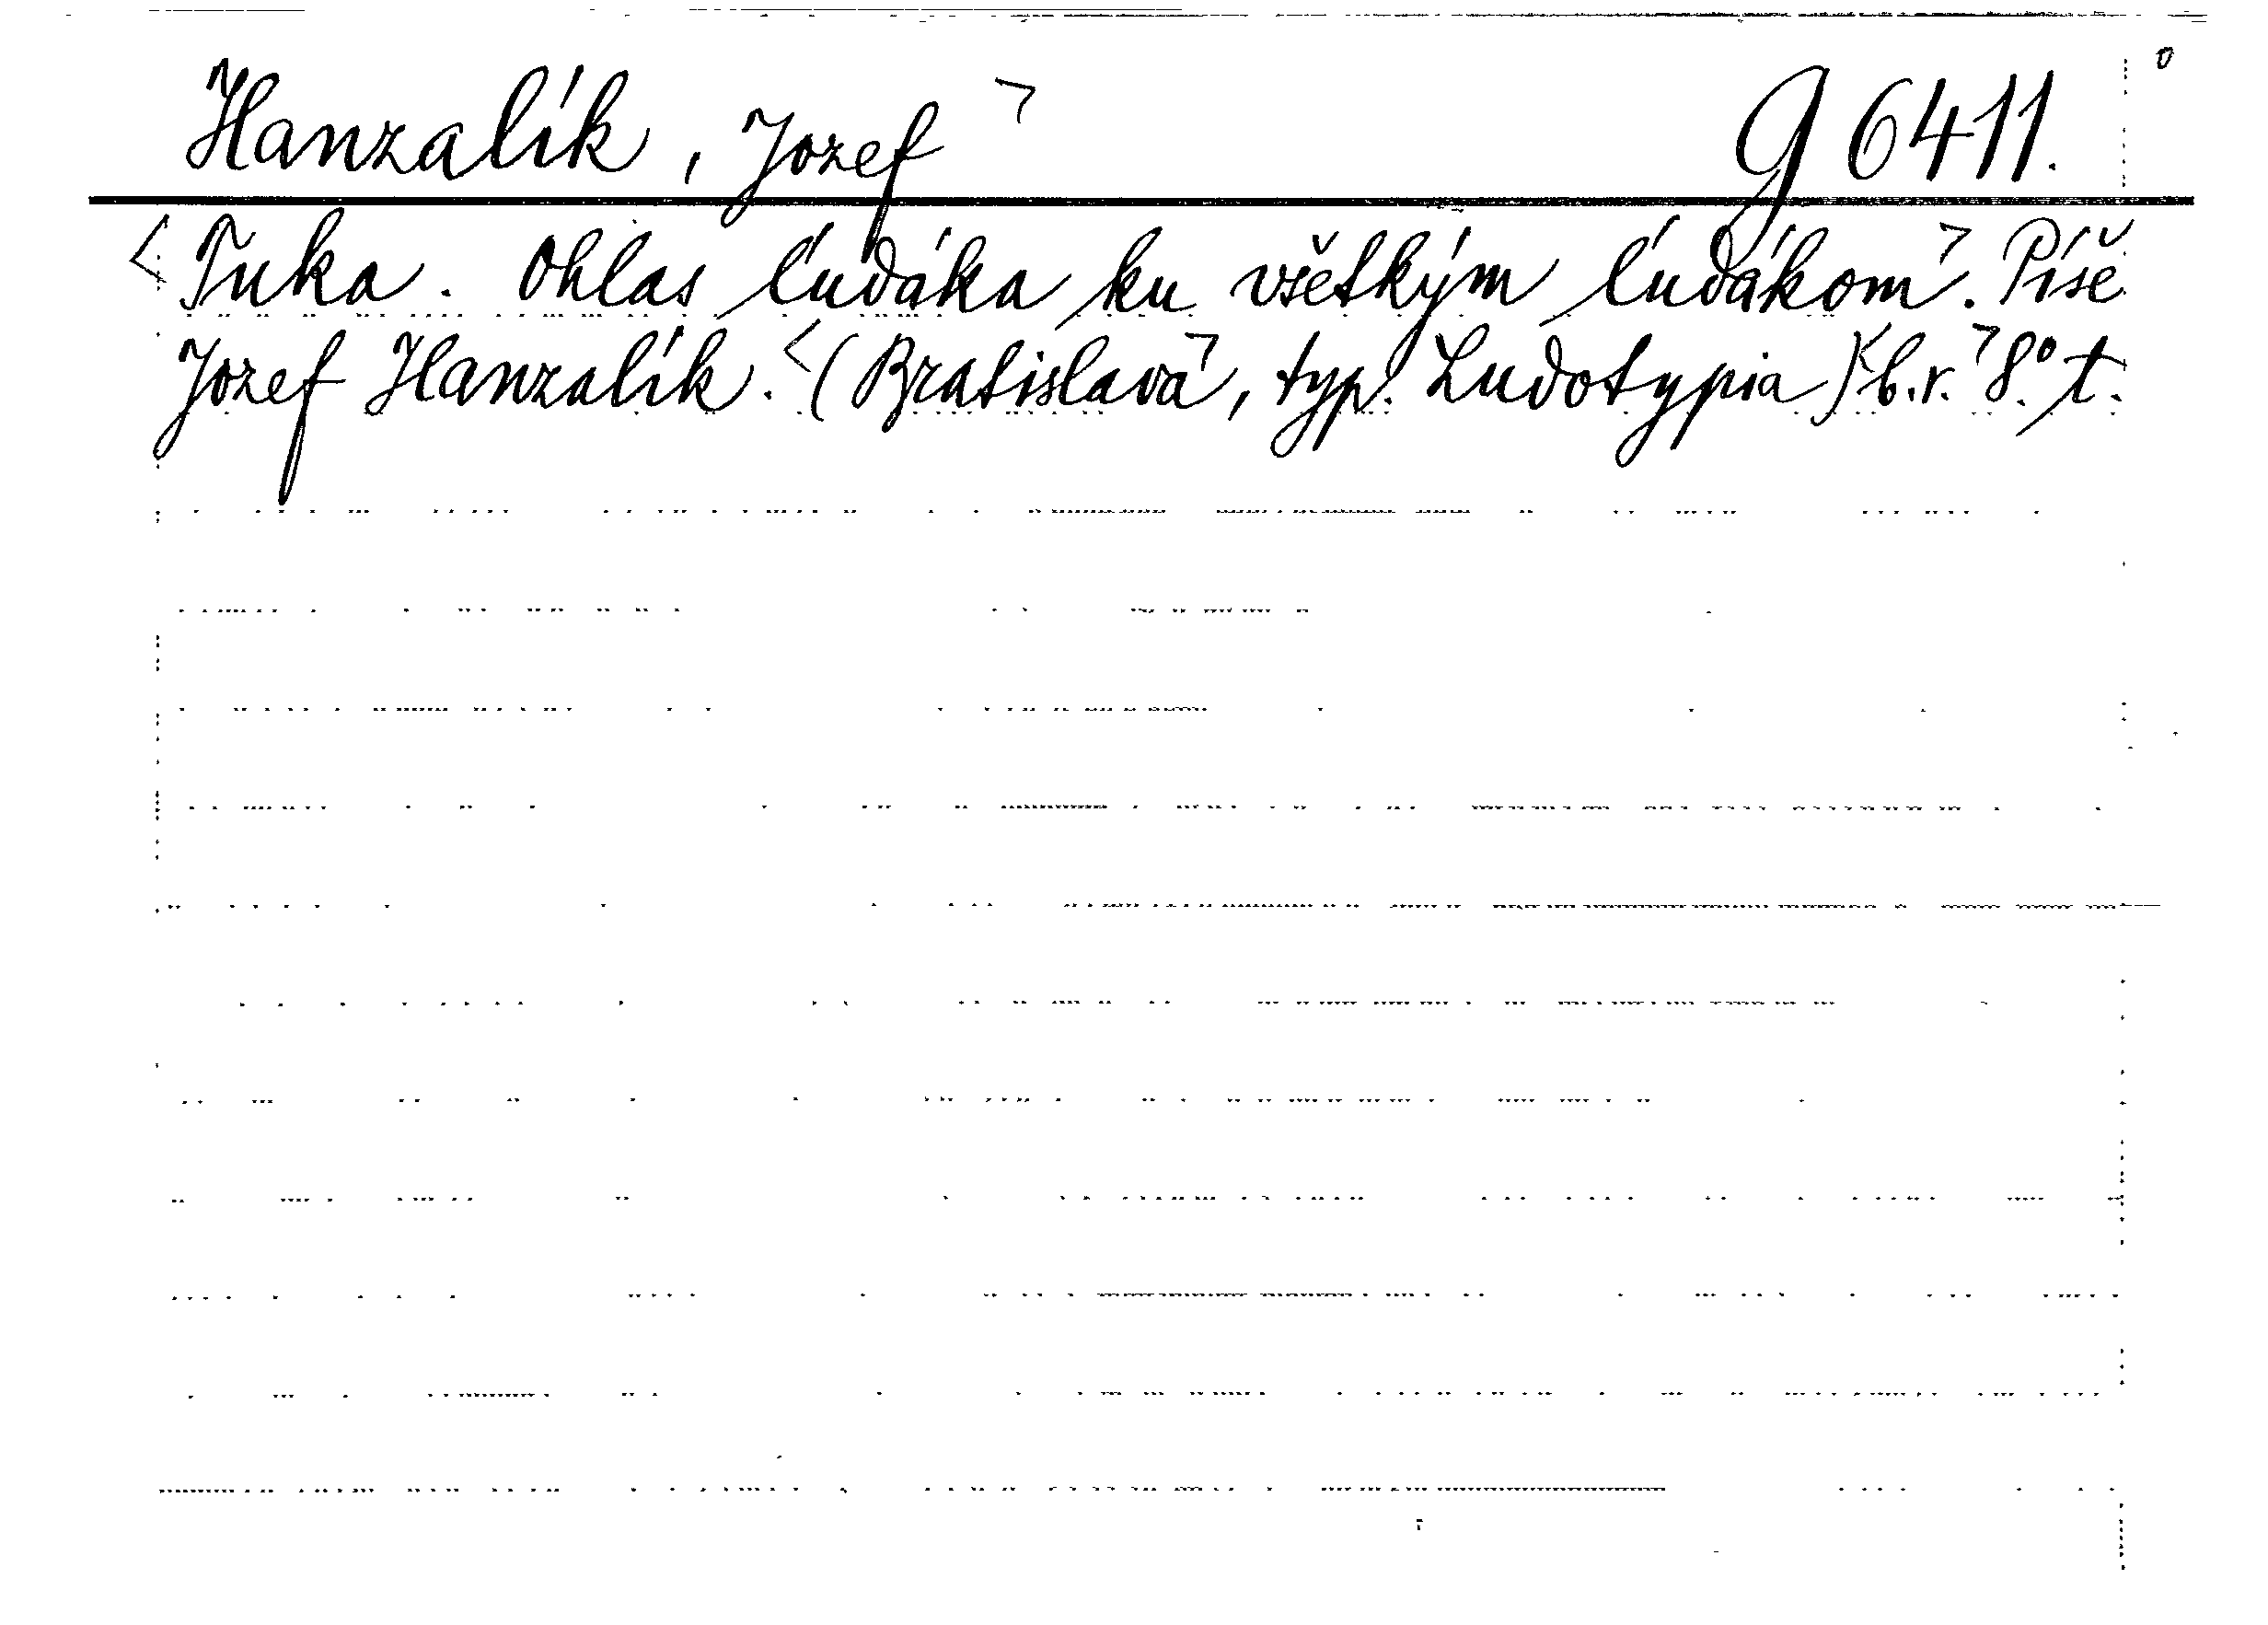 Hanzalík, Jozef ㄱ G 6411.
<Tuka. Ohlas ľudáka ku všetkým ľudákomㄱ. Píše
Jozef Hanzalík. <(Bratislavaㄱ, typ. Ludotypia) <b.r.ㄱ 8° t.